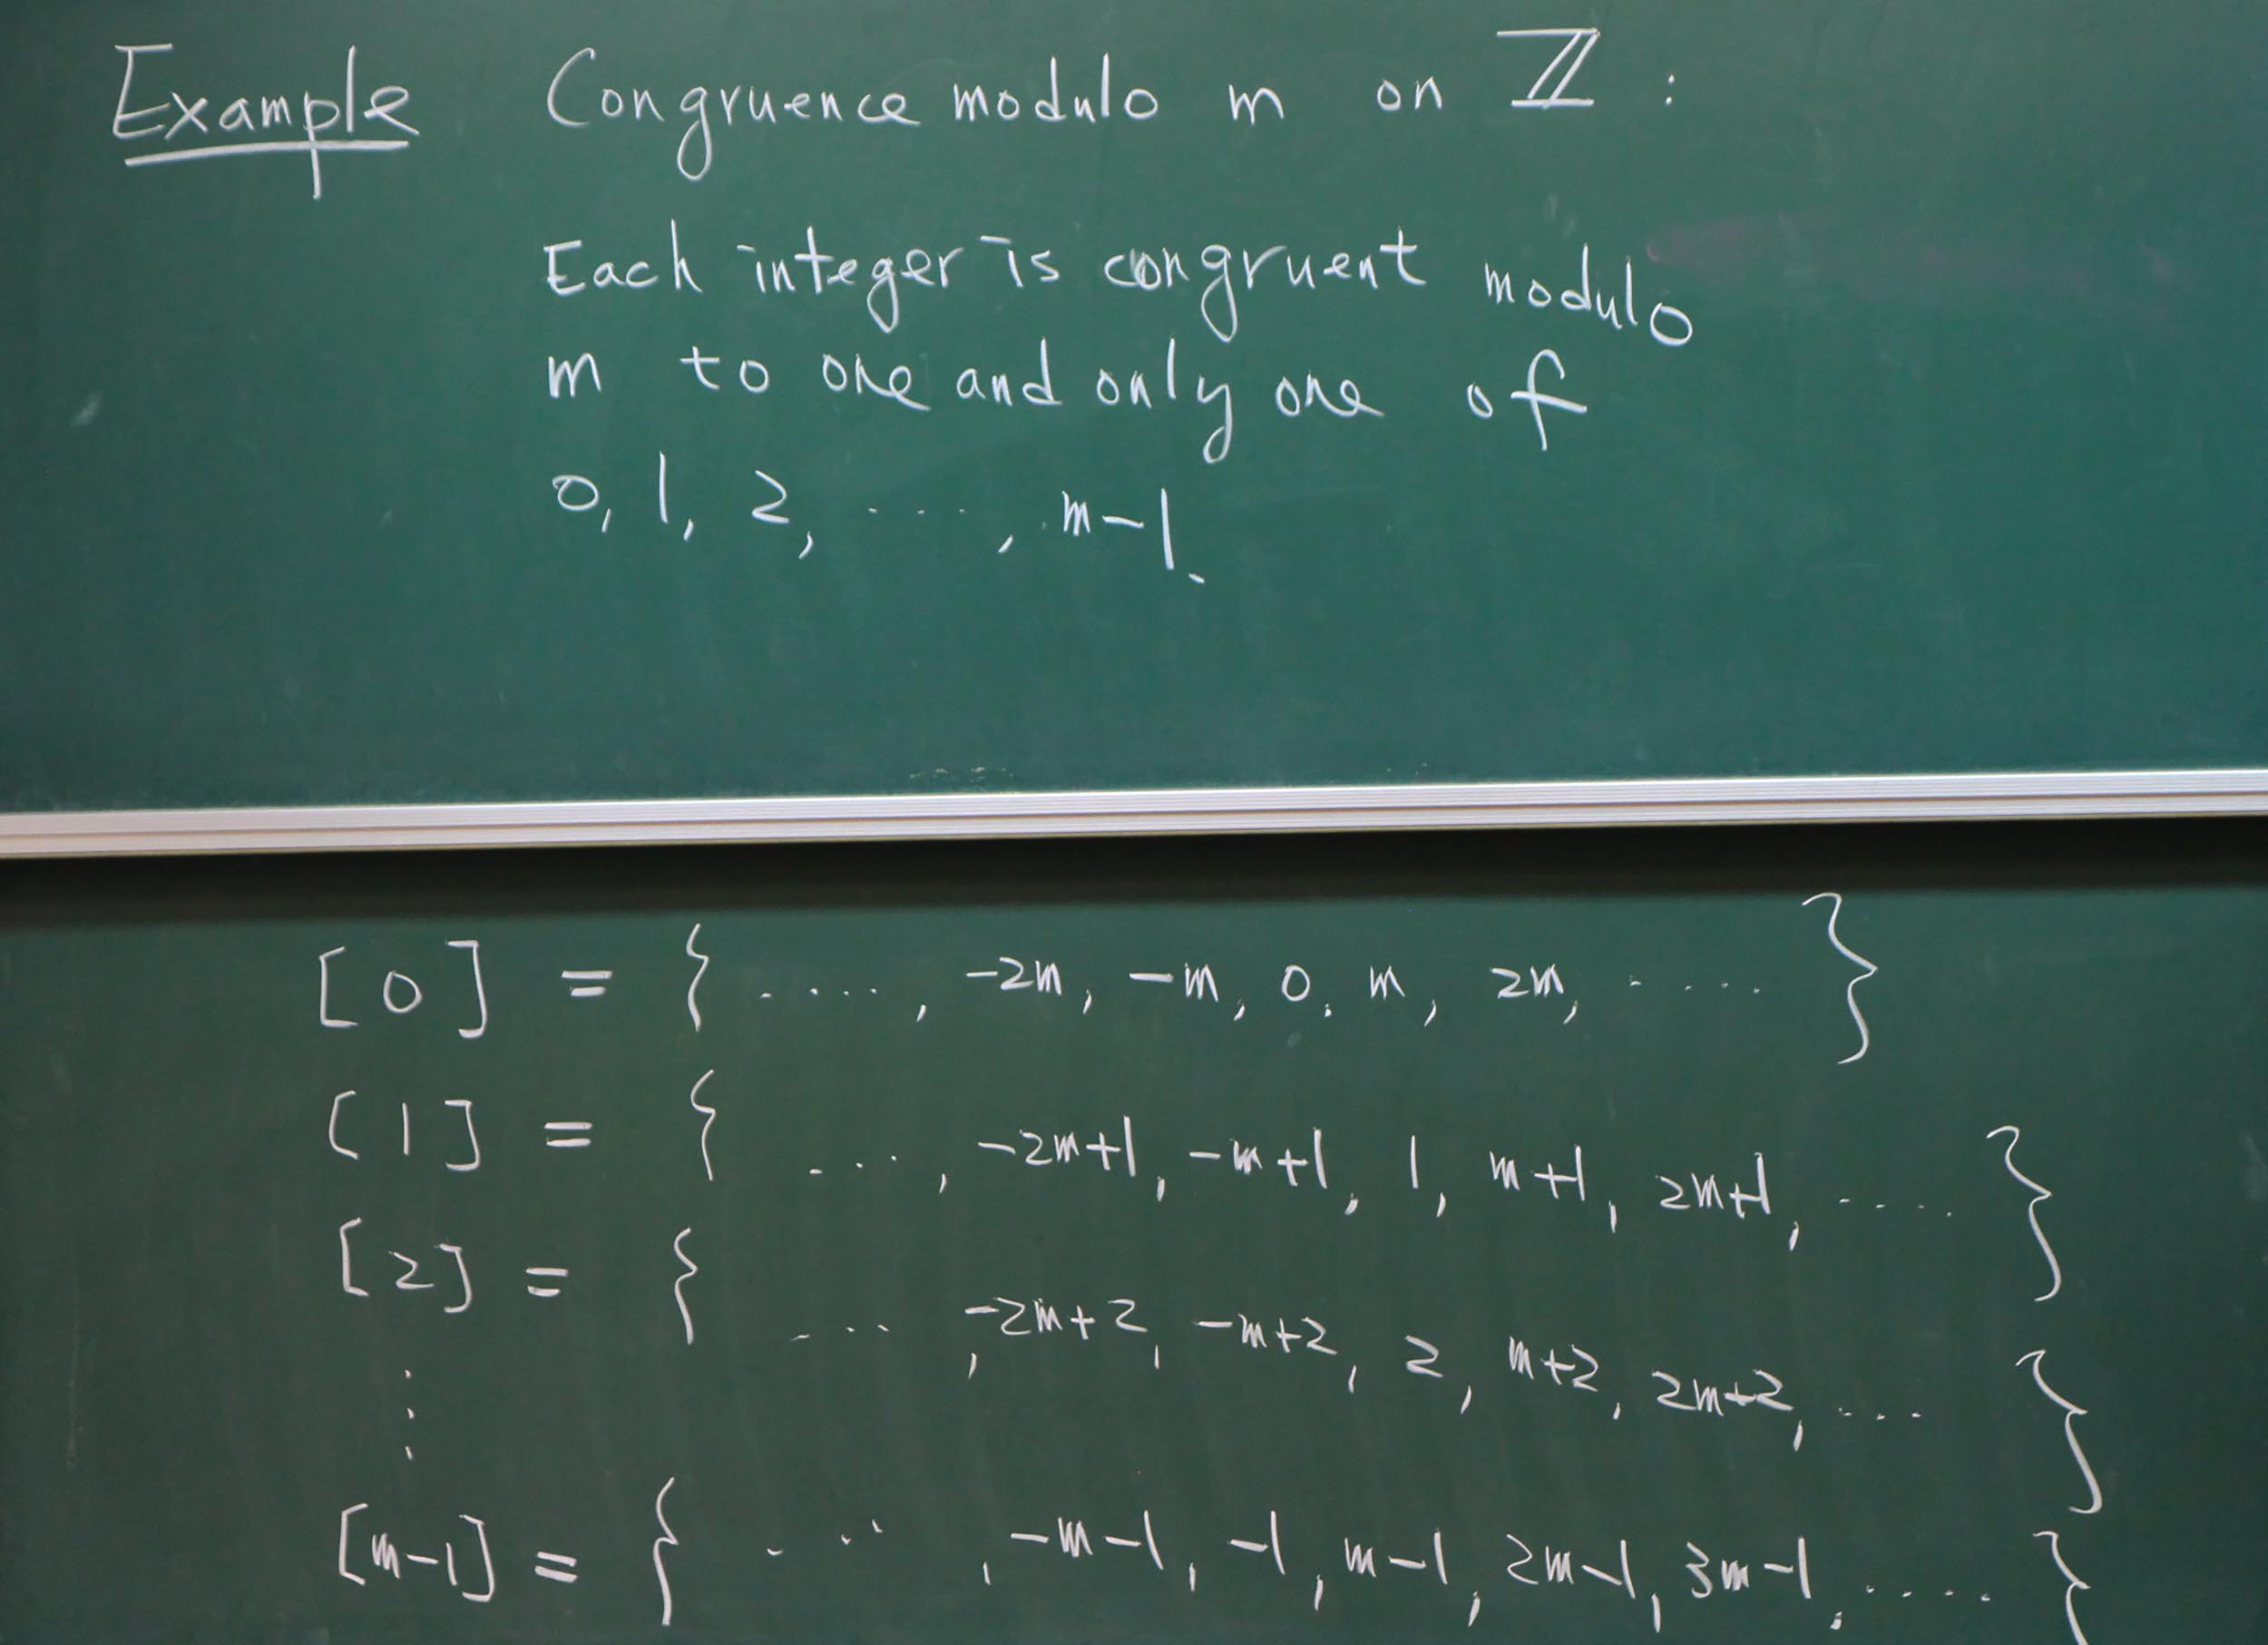 Example Congruence modulo m on ℤ :
Each integer is congruent modulo
m to one and only one of
0, 1, 2, ..... , m-1.
[0] = { ....., -2m, -m, 0, m, 2m, ..... }
[1] = { ....., -2m+1, -m+1, 1, m+1, 2m+1, ..... }
[2] = { ...., -2m+2, -m+2, 2, m+2, 2m+2, .... }
⋮
[m-1] = { ... , -m-1, -1, m-1, 2m-1, 3m-1, ..... }